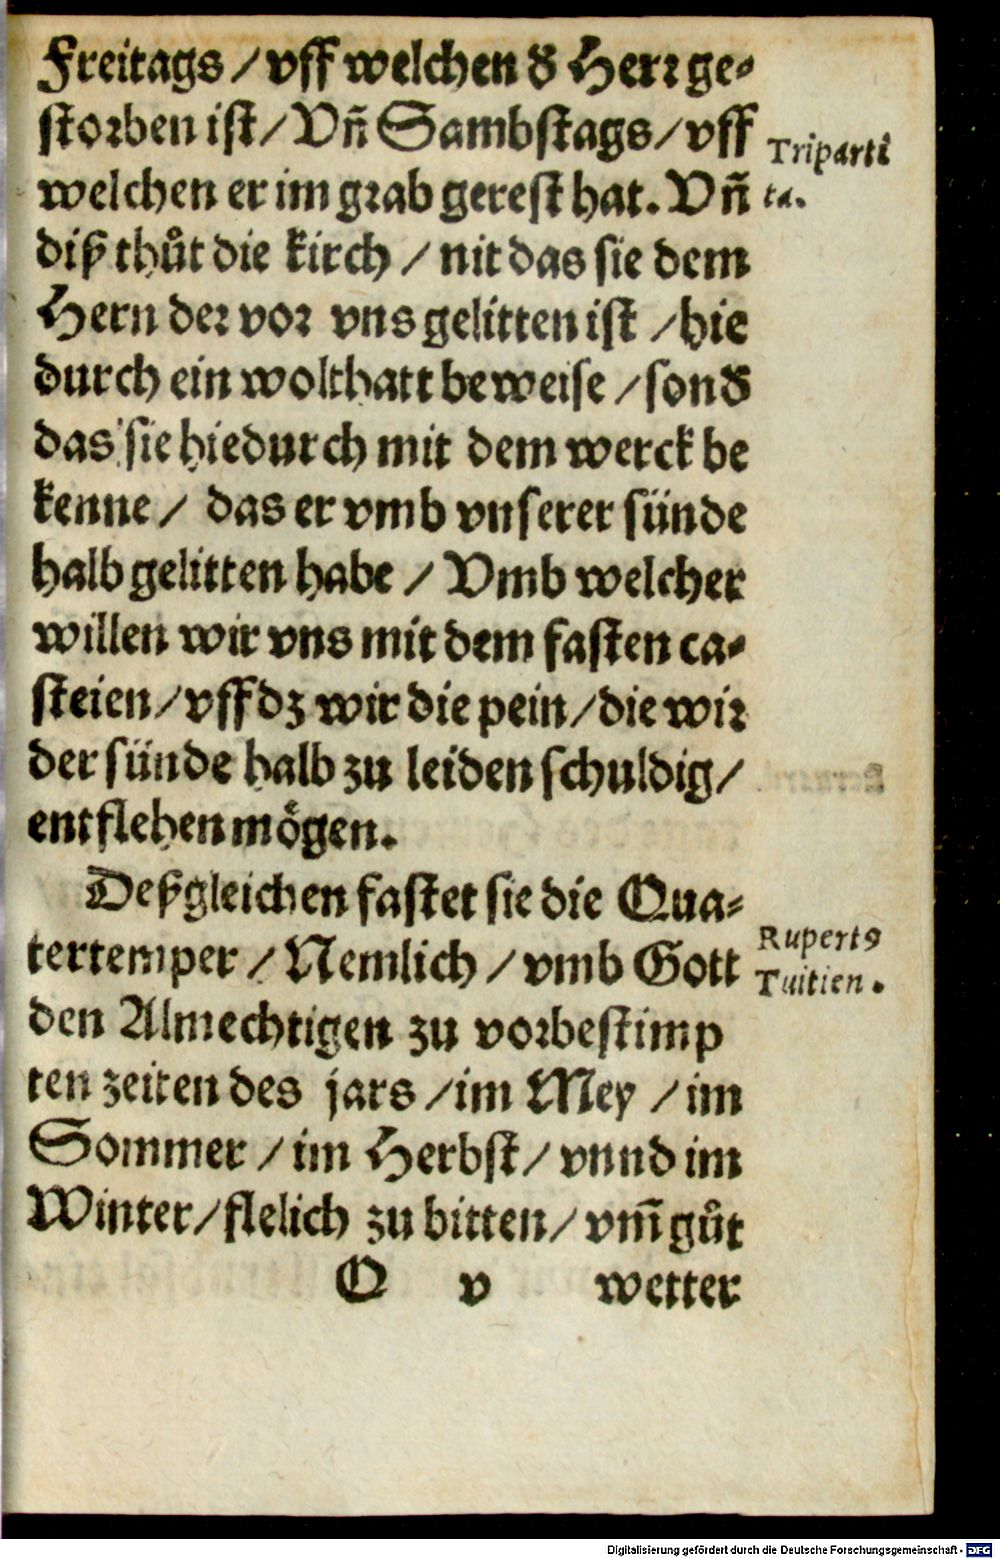 Freitags / vff welchen d̕ Herr ge⸗
storben ist / Vñ Sambstags / vff
welchen er im grab gerest hat. Vñ
diß thůt die kirch / nit das sie dem
Hern der vor vns gelitten ist / hie
durch ein wolthatt beweise / sond̕
das sie hiedurch mit dem werck be
kenne / das er vmb vnserer sünde
halb gelitten habe / Vmb welcher
willen wir vns mit dem fasten ca⸗
steien / vff dz wir die pein / die wir
der sünde halb zu leiden schuldig /
entflehen mögen.
Tripartí
ta.
Deßgleichen fastet sie die Qua⸗
tertemper / Nemlich / vmb Gott
den Almechtigen zu vorbestimp
ten zeiten des jars / im Mey / im
Sommer / im Herbst / vnnd im
Winter / flelich zu bitten / vm̃ gůt
Rupertꝰ
Tuitien.
Q v wetter
Digitalisierung gefördert durch die Deutsche Forschungsgemeinschaft - DFG